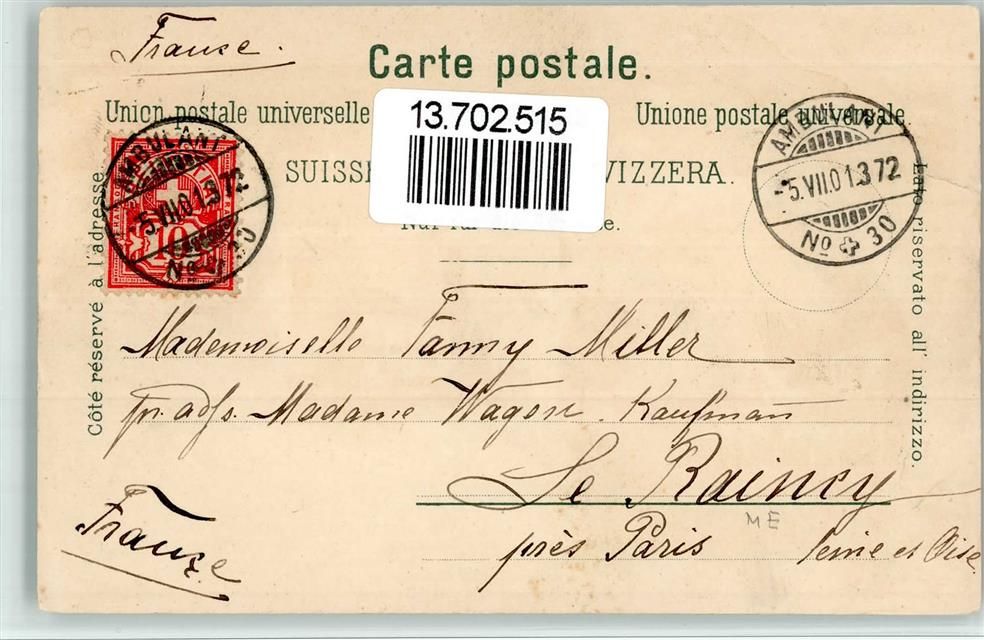 France.
Carte postale.
Union postale universelle
Unione postale universale.
13.702.515
SUISSE
VIZZERA.
Nur für
AMBULANT
-5.VII.01.372
No 30
AMBULANT
-5.VII.01.372
No 30
10
Côté réservé à l'adresse.
Lato riservato all' indirizzo.
Mademoiselle Fanny Miller
pr. ads. Madame Wagon. Kaufman
Le Raincy
ME
près Paris Seine et Oise.
France